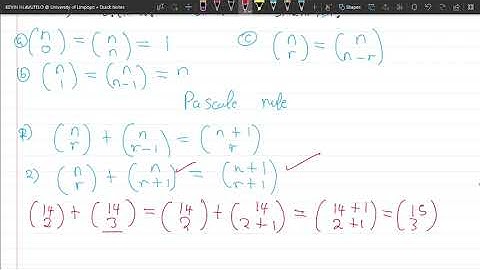 KEVIN HLAVUTELO @ University of Limpopo » Quick Notes
a) (n 0) = (n n) = 1
c) (n r) = (n n-r)
b) (n 1) = (n n-1) = n
Pascals rule
1) (n r) + (n r-1) = (n+1 r)
2) (n r) + (n r+1) = (n+1 r+1)
(14 2) + (14 3) = (14 2) + (14 2+1) = (14+1 2+1) = (15 3)